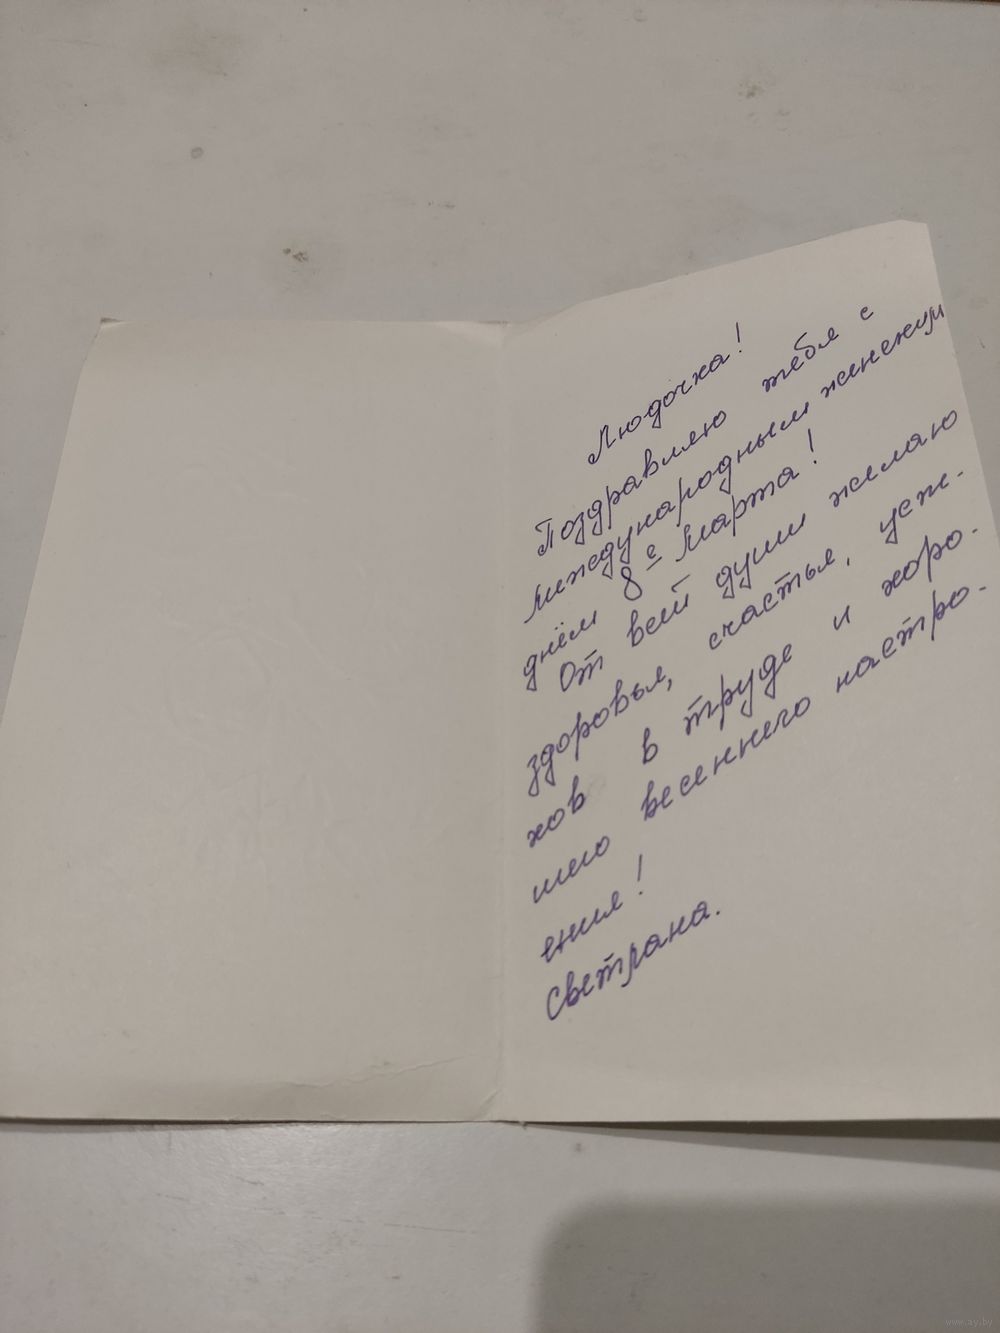 Людочка!
Поздравляю тебя с
международным женским
днём 8е Марта!
От всей души желаю
здоровья, счастья, успе-
хов в труде и хоро-
шего весеннего настро-
ения!
Светлана.
www.ay.by